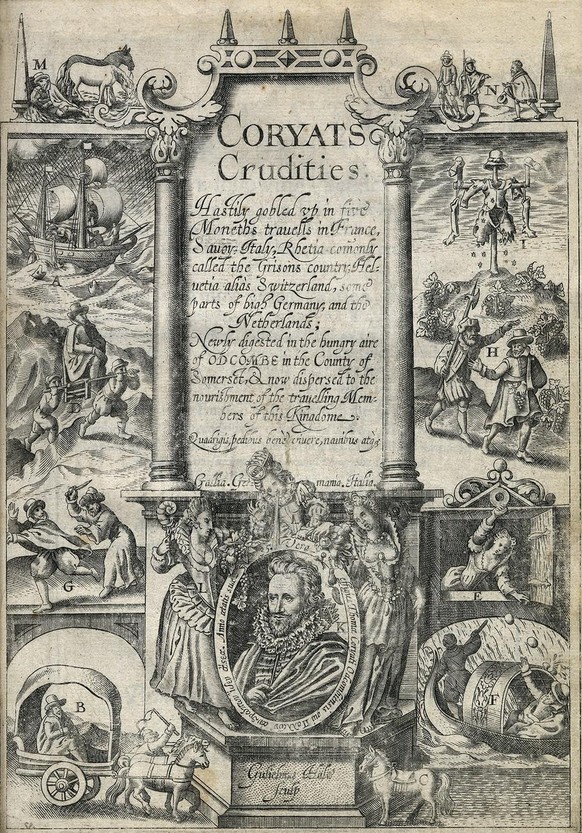 M
N
CORYATS
Crudities.
Hastily gobled vp in five
Moneths travells in France,
Savoy, Italy, Rhetia comonly
called the Grisons country, Hel-
uetia alias Switzerland, some
parts of high Germany, and the
Netherlands;
Newly digested in the hungry aire
of ODCOMBE in the County of
Somerset, & now dispersed to the
nourishment of the travelling Mem-
bers of this Kingdome.
Quadrigis, pedibus bene viuere, nauibus atq
Gallia. Ger mania. Italia.
A
I
D
H
G
E
B
F
Vera
Anno ætatis suæ
Gulielmus Hole
sculp